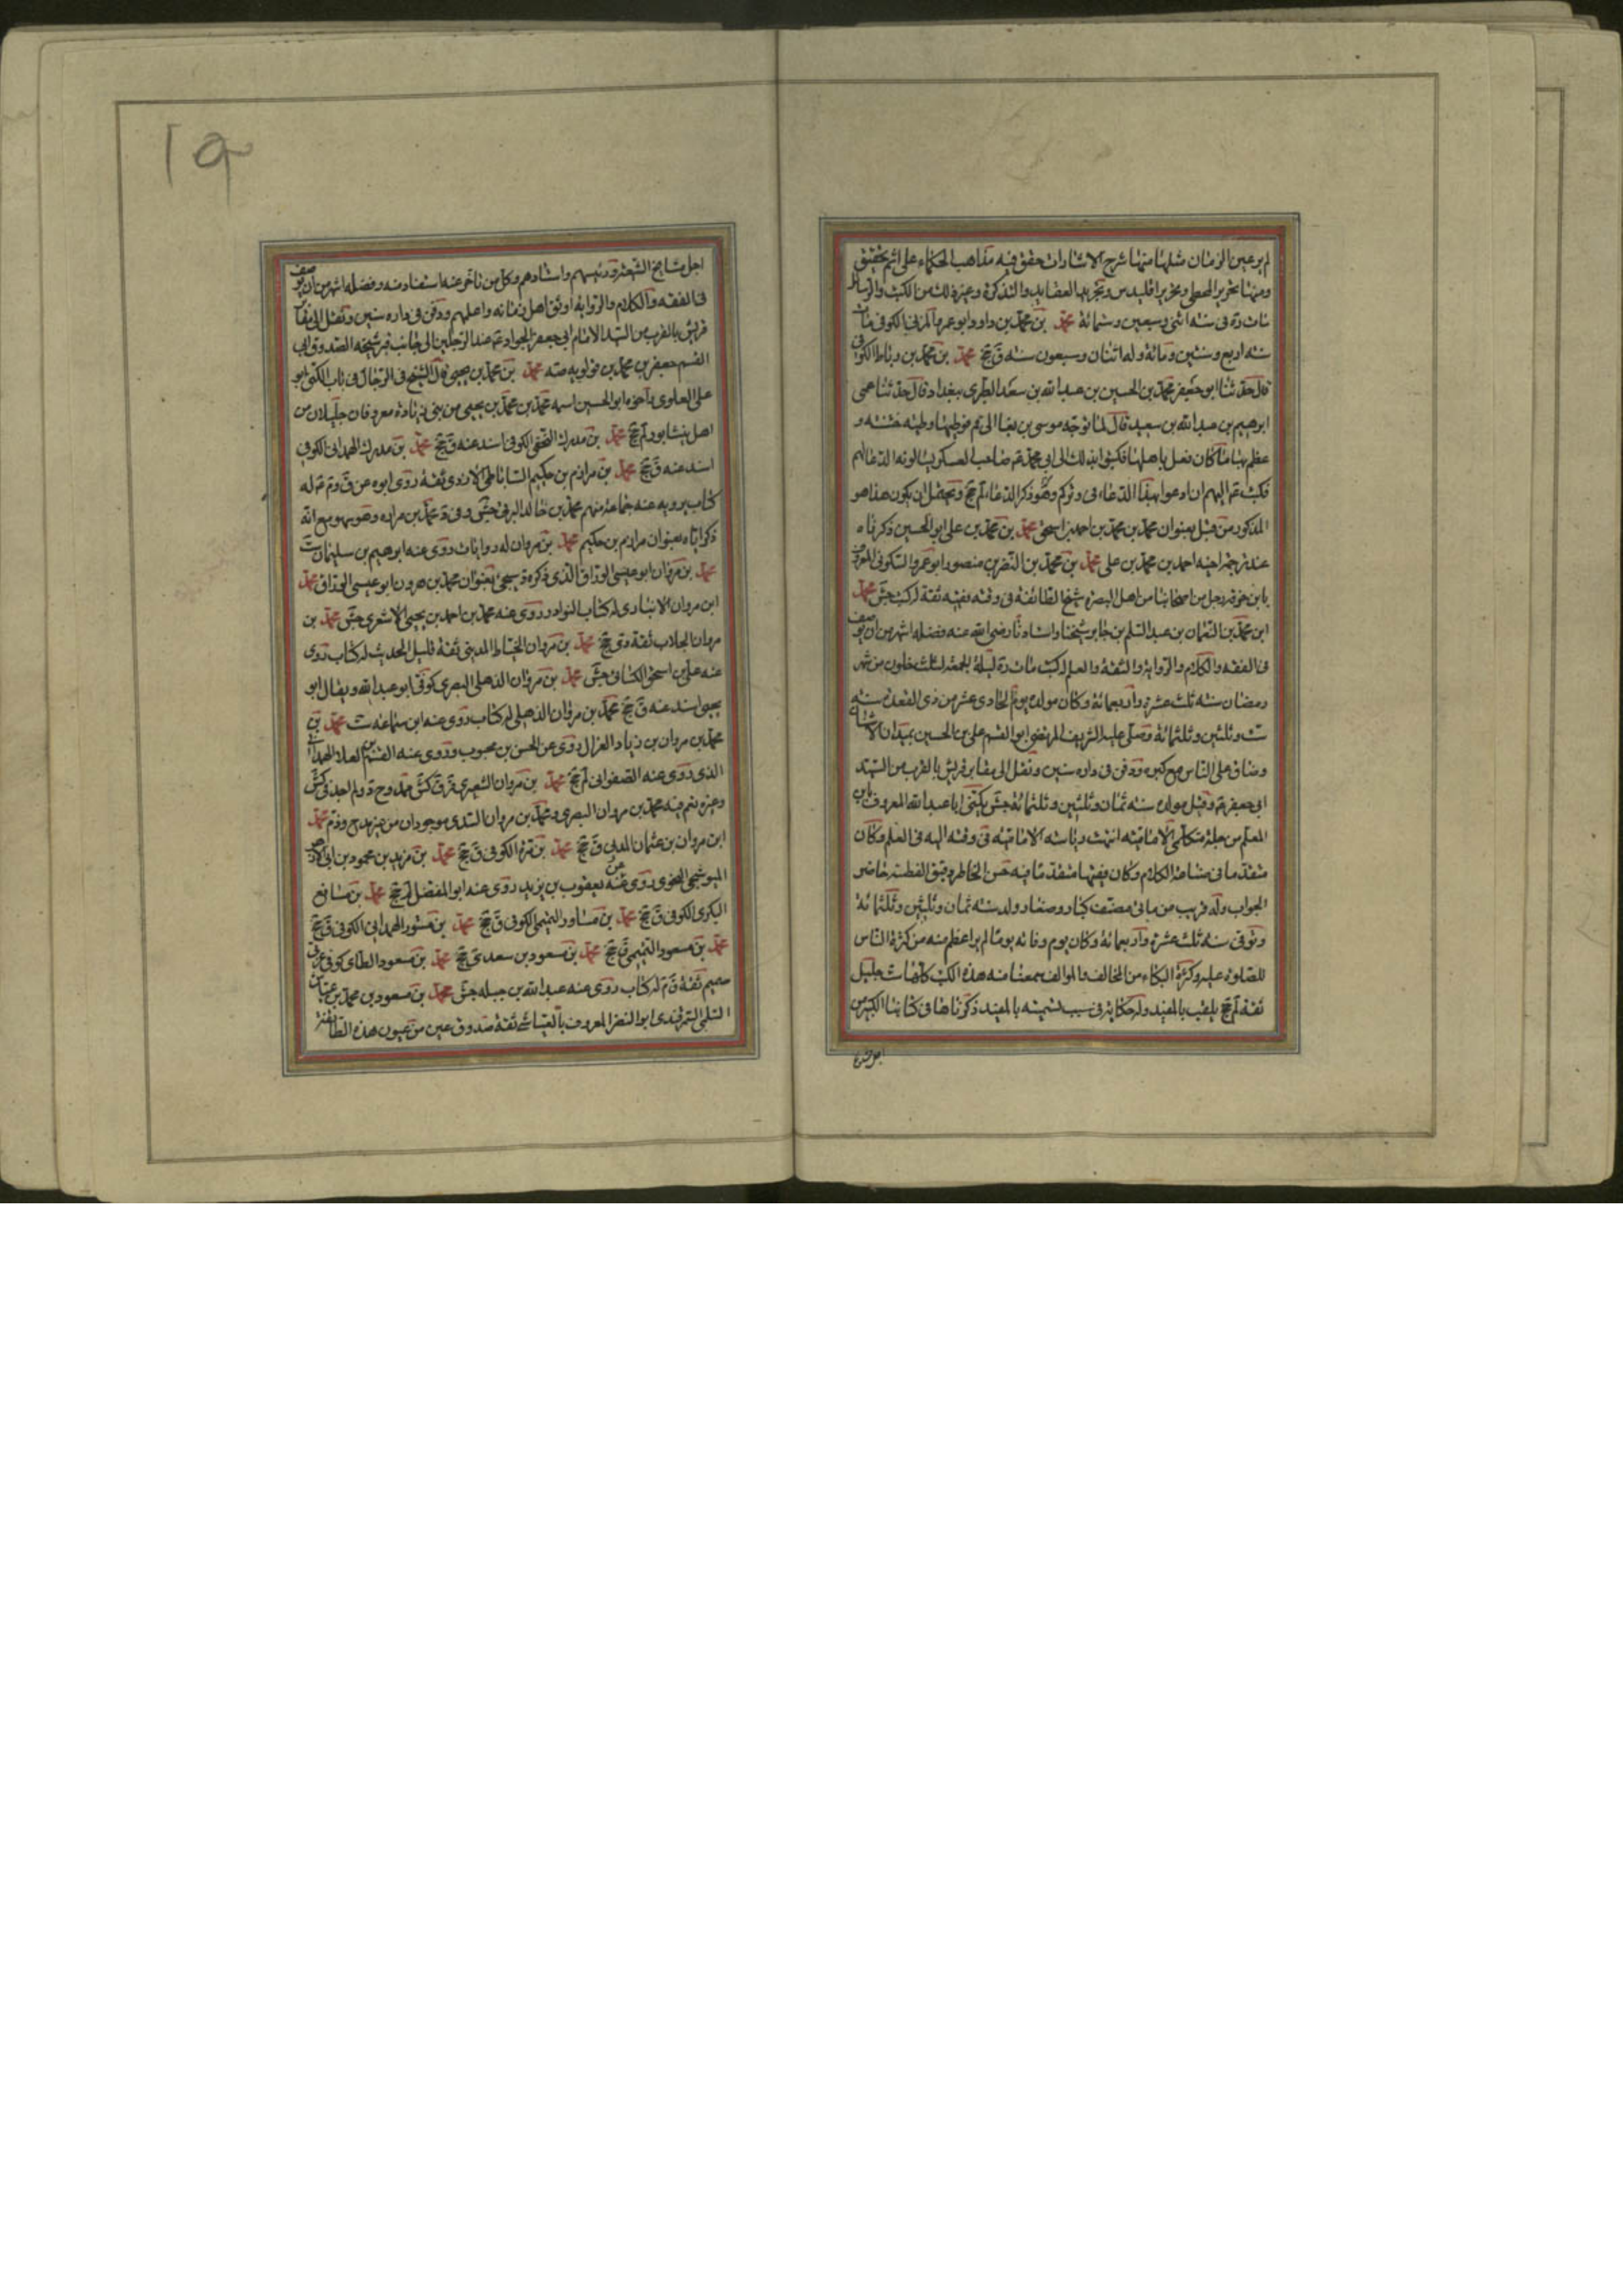 لم يرعين الزمان مثلها منها شرح الاشارات حقق فيه مذاهب الحكماء على اتم تحقيق
ومنها تحرير المجسطى وتحرير اقليدس وتجريد العقايد والتذكرة وغير ذلك من الكتب والرسائل
مات ره فى سنه اثنى وسبعين وستمائة محمد بن محمد بن داود ابو عمرو المزنى الكوفى مات
سنه اربع وستين ومائة وله اثنتان وسبعون سنه ق جخ محمد بن محمد بن رباط الكوفى
قال حدثنا ابو جعفر محمد بن الحسين بن عبد الله بن سعد الطبرى ببغداد قال حدثنا عمى
ابرهيم بن عبد الله بن سعيد قال لما توجه موسى بن بغا الى قم فوطيها وطيه خشنه و
عظم بها ما كان فعل باهلها فكتبوا بذلك الى ابى محمد عم صاحب العسكر يسالونه الدعا لهم
فكتب عم اليهم ان ادعوا بهذا الدعاء فى وتركم وهو وذكر الدعاء لم جخ ويحتمل ان يكون هذا هو
المذكور من قبل بعنوان محمد بن محمد بن احمد بن اسحق محمد بن محمد بن على ابو الحسين ذكرناه
عند ترجمة اخيه احمد بن محمد بن على محمد بن محمد بن النضر بن منصور ابو عمرو السكونى المعروف
بابن خرقه رجل من اصحابنا من اهل البصره شيخ الطائفة فى وقته فقيه ثقة له كتب جش محمد
ابن محمد بن النعمان بن عبد السلم بن جابر شيخنا واستادنا رضى الله عنه فضله اشهر من ان يوصف
فى الفقه والكلام والرواية والثقة والعلم له كتب مات ره ليلة الجمعه لثلث خلون من شهر
رمضان سنه ثلث عشرة واربعمائة وكان مولده يوم الحادى عشر من ذى القعدة سنه
ست وثلثين وثلثمائة وصلى عليه الشريف المرتضى ابو القسم على بن الحسين بميدان الاشنان
وضاق على الناس مع كبره ودفن فى داره سنين ونقل الى مقابر قريش بالقرب من السيد
ابى جعفر عم وقيل مولده سنه ثمان وثلثين وثلثمائة جش يكنى ابا عبد الله المعروف بابن
المعلم من جملة متكلمى الامامية انتهت رياسه الاماميه فى وقته اليه فى العلم وكان
متقدما فى صناعة الكلام وكان فقيها متقدما فيه حسن الخاطر دقيق الفطنه حاضر
الجواب وله قريب من مائى مصنف كبار وصغار ولد سنه ثمان وثلثين وثلثمائة
وتوفى سنه ثلث عشرة واربعمائة وكان يوم وفاته يوما لم ير اعظم منه من كثرة الناس
للصلوة عليه وكثرة البكاء من المخالف والموالف سمعنا منه هذه الكتب كلها ست جليل
ثقه لم جخ يلقب بالمفيد وله حكاية فى سبب تسميته بالمفيد ذكرناها فى كتابنا الكبير من
اجل مشايخ
اجل مشايخ الشيعة ورئيسهم واستادهم وكل من تاخر عنه استفاد منه وفضله اشهر من ان يوصف
فى الفقه والكلام والرواية اوثق اهل زمانه واعلمهم ودفن فى داره سنين ونقل الى مقابر
قريش بالقرب من السيد الامام ابى جعفر الجواد عم عند الرجلين الى جانب قبر شيخه الصدوق ابى
القسم جعفر بن محمد بن قولويه صه محمد بن محمد بن يحيى قال الشيخ فى الرجال فى باب الكنى ابو
على العلوى واخوه ابو الحسين اسمه محمد بن محمد بن يحيى من بنى زبارة معروفان جليلان من
اهل نيشابور لم جخ محمد بن مدرك النخعى الكوفى اسند عنه ق جخ محمد بن مدرك الهمدانى الكوفى
اسند عنه ق جخ محمد بن مرازم بن حكيم الساباطى الازدى ثقة روى ابوه عن ق وم عم له
كتاب يرويه عنه جماعة منهم محمد بن خالد البرقى جش وفى د محمد بن مراد وهو سهو مع انه
ذكر اباه بعنوان مرازم بن حكيم محمد بن مروان له روايات روى عنه ابرهيم بن سليمان ست
محمد بن مروان ابو عيسى الوراق الذى ذكره د سيجئ بعنوان محمد بن هرون ابو عيسى الوراق محمد
ابن مروان الانبارى له كتاب النوادر روى عنه محمد بن احمد بن يحيى الاشعرى جش محمد بن
مروان الجلاب ثقة دى جخ محمد بن مروان الخياط المدينى ثقة قليل الحديث له كتاب روى
عنه على بن اسحق الكسائى جش محمد بن مروان الذهلى البصرى كوفى ابو عبد الله ويقال ابو
يحيى اسند عنه ق جخ محمد بن مروان الذهلى له كتاب روى عنه ابن سماعه ست محمد بن
محمد بن مروان بن زياد الغزال روى عن الحسن بن محبوب وروى عنه القسم بن العلا الهمدانى
الذى روى عنه الصفوانى لم جخ محمد بن مروان الشعيرى قر ق كش ممدوح د ولم اجد فى كش
وغيره نعم فيه محمد بن مروان البصرى ومحمد بن مروان السدى موجودان من غير مدح وذم محمد
ابن مروان بن عثمان المدنى ق جخ محمد بن مرة الكوفى ق جخ محمد بن مزيد بن محمود بن ابى الازهر
البوشنجى النحوى روى عنه عن يعقوب بن يزيد روى عنه ابو المفضل لم جخ محمد بن مسافع
البكرى الكوفى ق جخ محمد بن مساور التميمى الكوفى ق جخ محمد بن مستور الهمدانى الكوفى ق جخ
محمد بن مسعود التميمى ق جخ محمد بن مسعود بن سعد ى جخ محمد بن مسعود الطاى كوفى عربى
صميم ثقة ق م له كتاب روى عنه عبد الله بن جبله جش محمد بن مسعود بن محمد بن عياش
السلمى السمرقندى ابو النضر المعروف بالعياشى ثقة صدوق عين من عيون هذه الطائفة